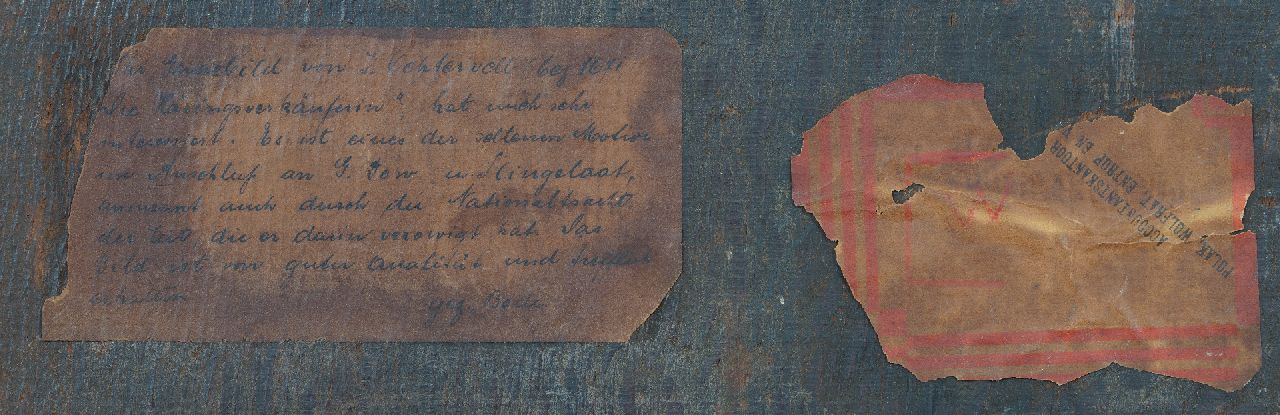 Ihr Kunstbild von J. Ochtervelt bez 16
"Die Häringsverkäuferin", hat mich sehr
interessiert. Es ist eines der seltenen Motive
im Anschluß an G. Dow u Slingelaat,
amusant auch durch die Nationaltracht
der Zeit die er darin verewigt hat. Das
Bild ist von guter Qualität und
erhalten
gez. Bode
W
POLAK, WOLFRAT, ENTROP EN
ACCOUNTANTSKANTOOR